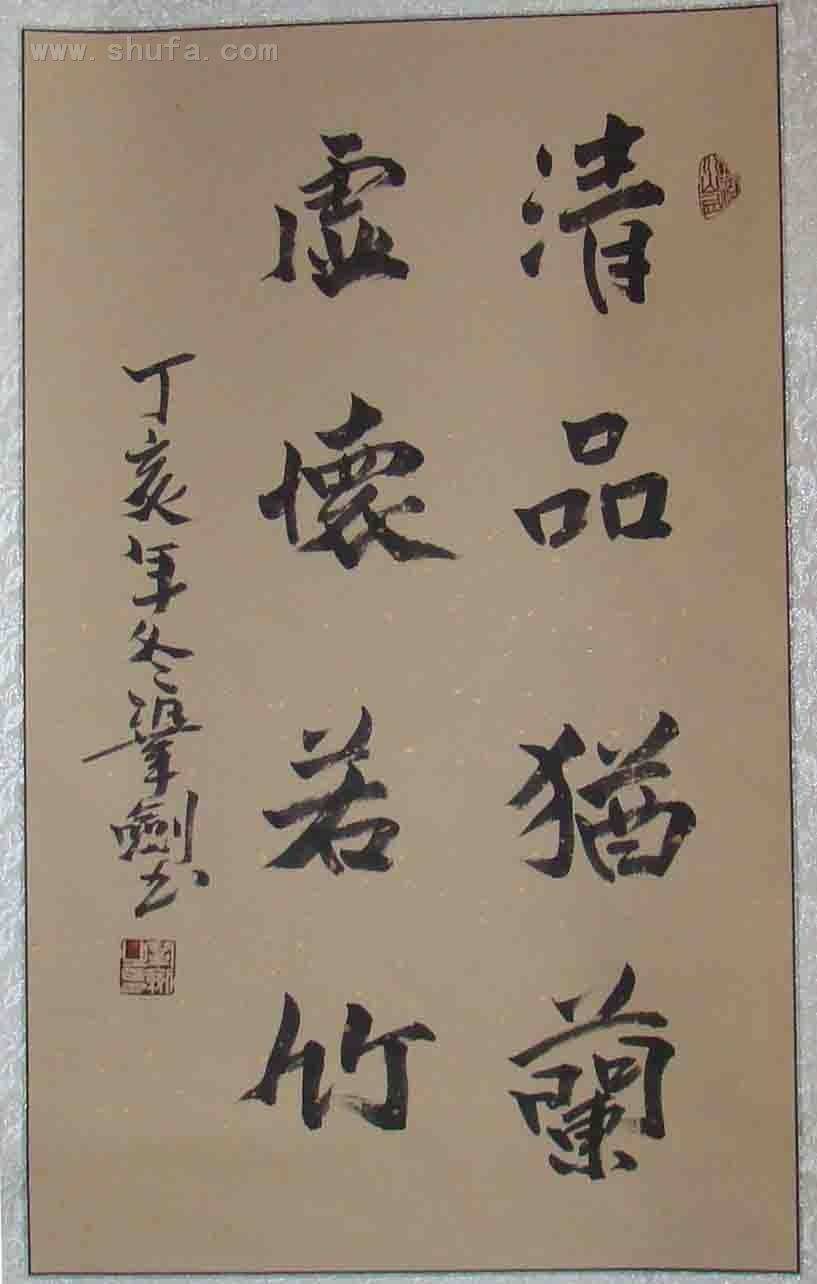 www.shufa.com
清品猶蘭
虛懷若竹
丁亥年冬 劍書